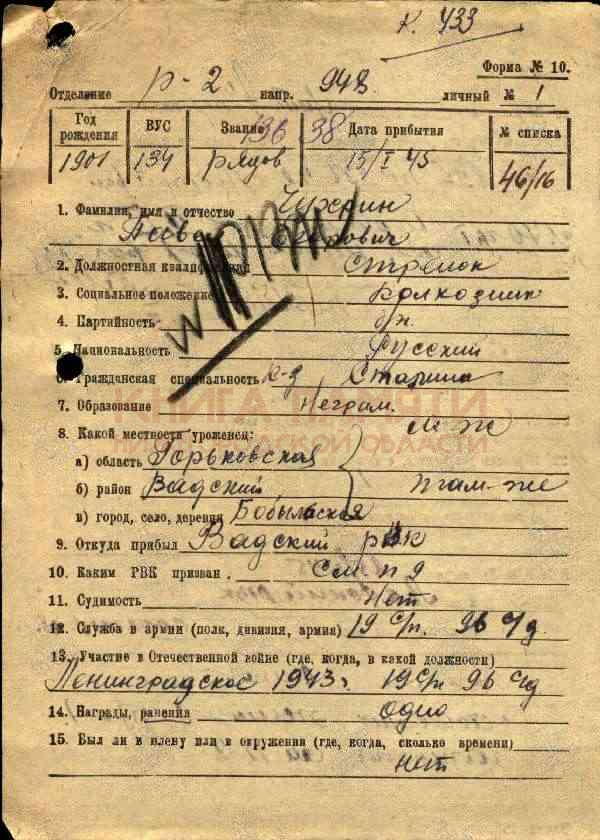 К. 433
Форма № 10.
Отделение р-2 напр. 948 личный № 1
Год рождения ВУС Звание 196 38 Дата прибытия № списка
1901 134 рядов 15/I 45 46/16
1. Фамилия, имя и отчество
2. Должностная квалификация Стрелок
3. Социальное положение Колхозник
4. Партийность б/п.
5. Национальность Русский
6. Гражданская специальность
7. Образование Неграм.
8. Какой местности уроженец:
а) область Горьковская
б) район Вадский там-же
в) город, село, деревня
9. Откуда прибыл Вадский рвк
10. Каким РВК призван См. п 9
11. Судимость Нет
12. Служба в армии (полк, дивизия, армия) 19 с/п. 96 с/д
13. Участие в Отечественной войне (где, когда, в какой должности)
1943г. 19 с/п 96 с/д
14. Награды, ранения одно
15. Был ли в плену или в окружении (где, когда, сколько времени)
нет
КНИГА ПАМЯТИ
ОБЛАСТИ